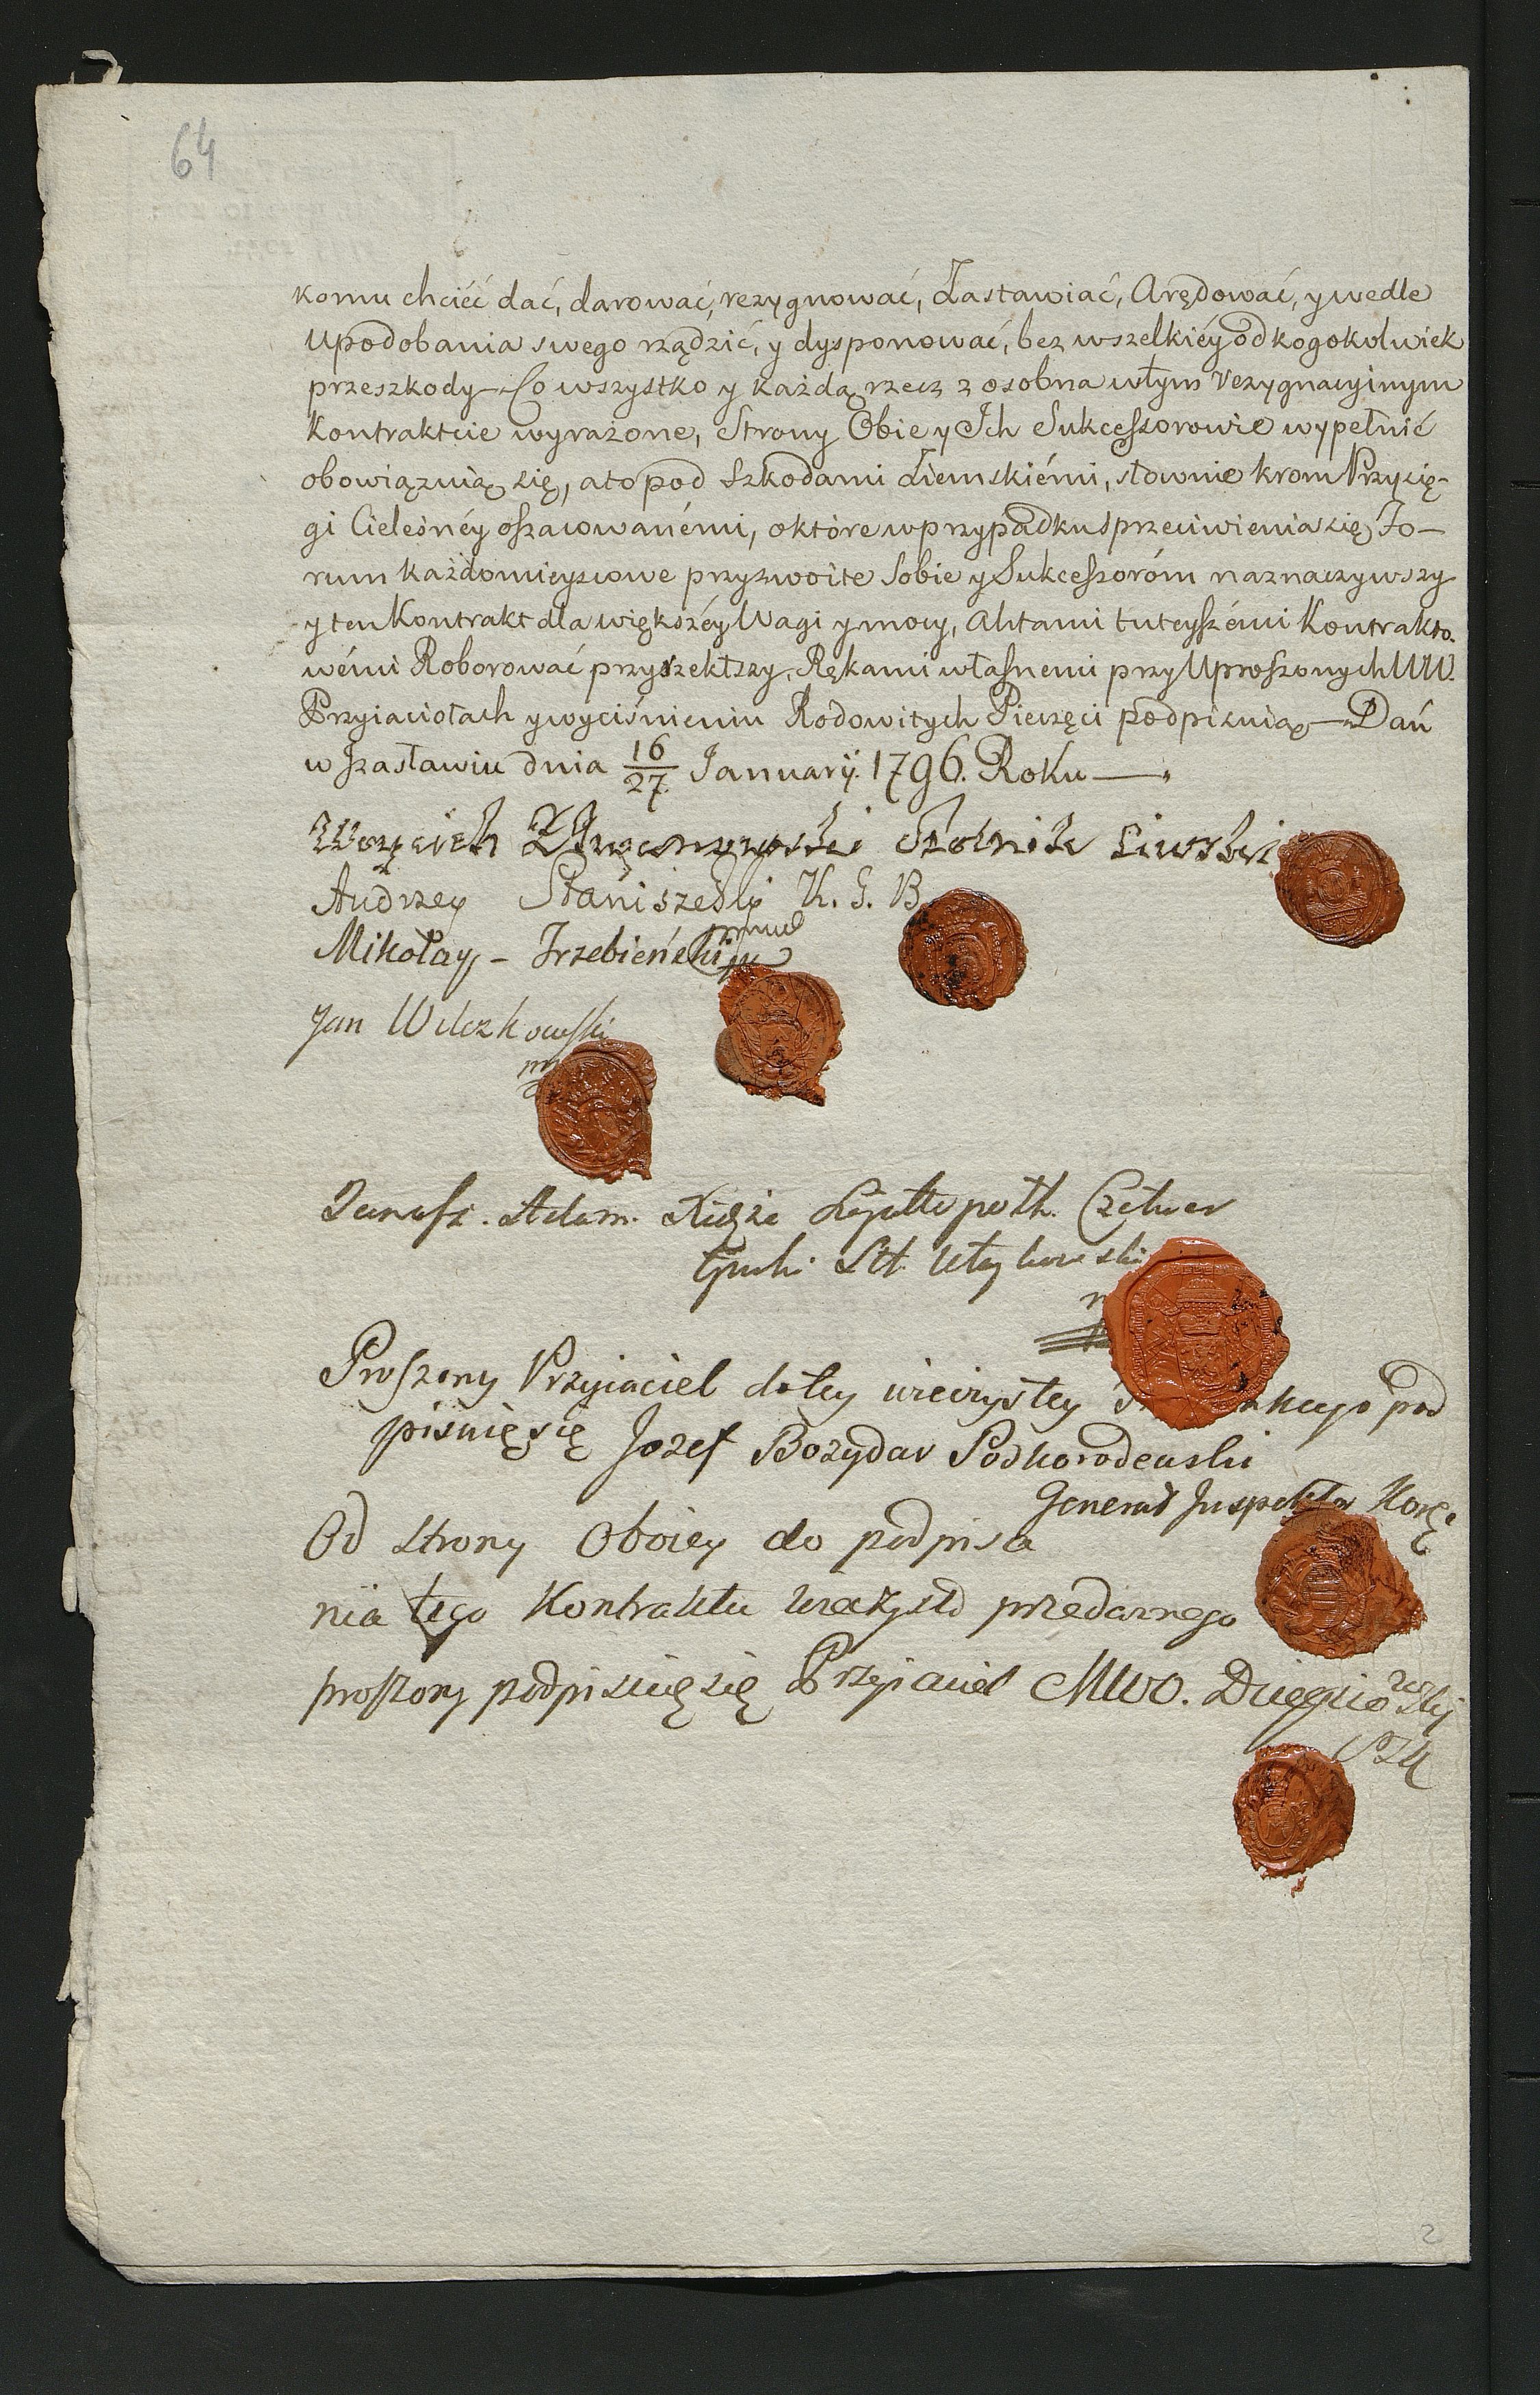 64
komu chcieć dać, darować, rezygnować, Zastawiać, Arędować, y wedle
upodobania swego rządzić, y dysponować, bez wszelkiéy od kogokolwiek
przeszkody — Co wszystko y każdą rzecz z osobna w tym rezygnacyinym
kontrakcie wyrażone, Strony Obie y Ich Sukcessorowie wypełnić
obowiązuią się, a to pod Szkodami Ziemskiémi, słownie krom Przysię-
gi Cieleśnéy oszacowanémi, o które w przypadku sprzeciwienia się Fo-
rum każdomieyscowe przyzwoite Sobie y Sukcessoróm naznaczywszy
y ten Kontrakt dla większéy Wagi y mocy, Aktami tuteyszémi Kontrakto-
wémi Roborować przyrzekłszy, Rękami własnemi przy Uproszonych WW.
Przyiaciołach y wyciśnieniu Rodowitych Pieczęci podpisuią — Dań
w Zasławiu dnia 16/27 Januarÿ. 1796. Roku —
Woyciech Stolnik Liwski
Andrzey Staniszewski K. G. B.
Mikołay - Trzebieński mp
Jan Wilczkowski
mp
Janusz. Adam. Xiąże Swiatopełk. Czetwer
tyński Stt.
Proszony Przyiaciel do tey wieczystey pod
pisuię się Jozef Bozydar Podhorodenski
Generał Inspektor
Od strony Oboiey do podpisa
nia tego Kontraktu wieczysto przedarnego
proszony podpisuię się Przyiaciel
2